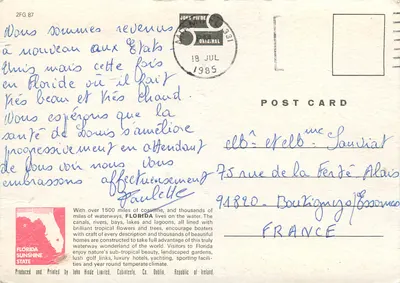 2FG 87
Nous sommes revenus
à nouveau aux Etats
Unis mais cette fois
en Floride où il fait
très beau et très chaud.
Nous espérons que la
santé de Louis s'améliore
progressivement en attendant
de vous voir nous vous
embrassons affectueusement
Paulette
18 JUL
1985
POST CARD
Mr et Mme Sauviat
75 rue de la Ferté Alais
91820 - Boutigny/Essonne
FRANCE
FLORIDA
SUNSHINE
STATE
With over 1500 miles of coastline, and thousands of
miles of waterways, FLORIDA lives on the water. The
canals, rivers, bays, lakes and lagoons, all lined with
brilliant tropical flowers and trees, encourage boaters
with craft of every description and thousands of beautiful
homes are constructed to take full advantage of this truly
waterway wonderland of the world. Visitors to Florida
enjoy nature's sub-tropical beauty, landscaped gardens,
lush golf links, luxury hotels, yachting, sporting facili-
ties and year round temperate climate.
Produced and Printed by John Hinde Limited, Cabinteely, Co. Dublin, Republic of Ireland.